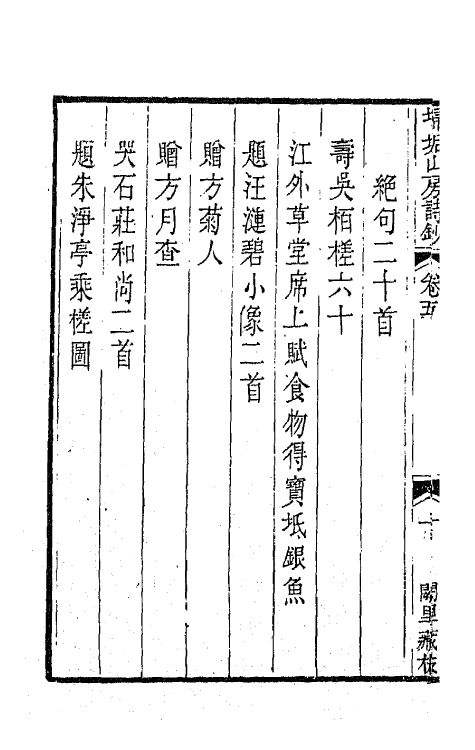 絕句二十首
壽吳栢槎六十
江外草堂席上賦食物得寶坻銀魚
題汪漣碧小像二首
贈方菊人
贈方月查
哭石莊和尚二首
題朱淨亭乘槎圖
山房詩鈔 卷五
十
闕里藏板